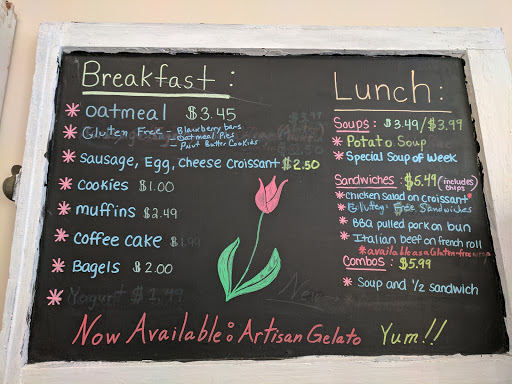 Breakfast:
* oatmeal $3.45
* Gluten Free - Blackberry bars
Oatmeal Pies
Peanut Butter Cookies
* sausage, Egg, cheese croissant $2.50
* cookies $1.00
* muffins $2.49
* coffee cake $1.99
* Bagels $2.00
* Yogurt $1.49
New
Lunch:
Soups: $3.49/$3.99
* Potato Soup
* Special Soup of Week
Sandwiches: $5.49 (includes chips)
* Chicken salad on croissant*
* Gluten-Free Sandwiches
* BBQ pulled pork on bun
* Italian beef on french roll
*available as a Gluten-free
Combos: $5.99
* Soup and 1/2 sandwich
Now Available: Artisan Gelato Yum!!